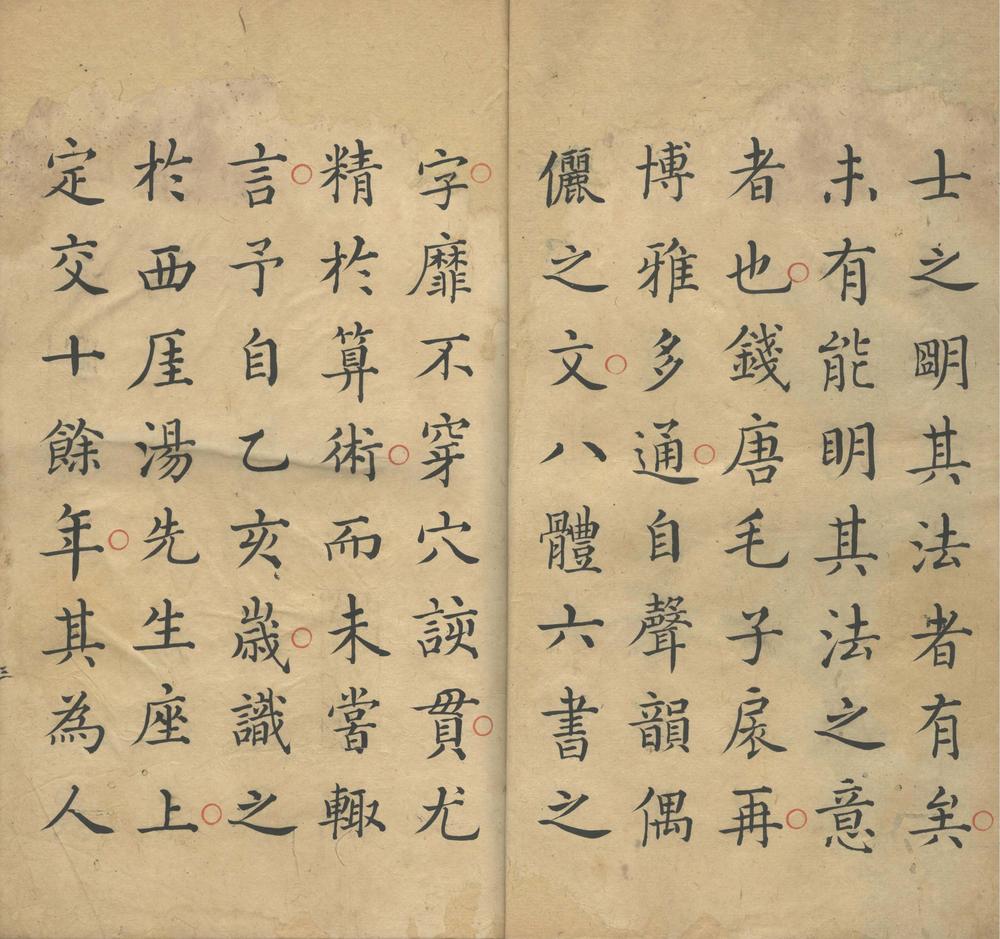 士之朙其法者有矣
未有能眀其法之意
者也錢唐毛子扆再
博雅多通自聲韻偶
儷之文八體六書之
字靡不穿穴該貫尤
精於算術而未嘗輙
言予自乙亥歲識之
於西厓湯先生座上
定交十餘年其為人